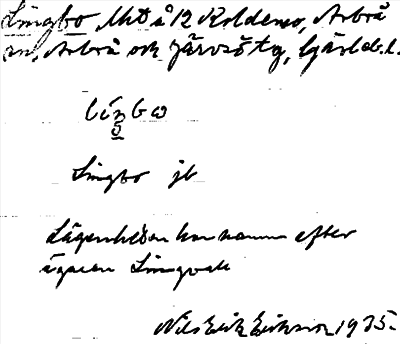 Lingbo, Ut å 12 Koldemo, Arbrå
sn, Arbrå och Järvsö tg, Gävleb. l.
Lingbo jb
Lägenheten har namn efter
ägaren Lingvall
Nils Erik Eriksson 1935.